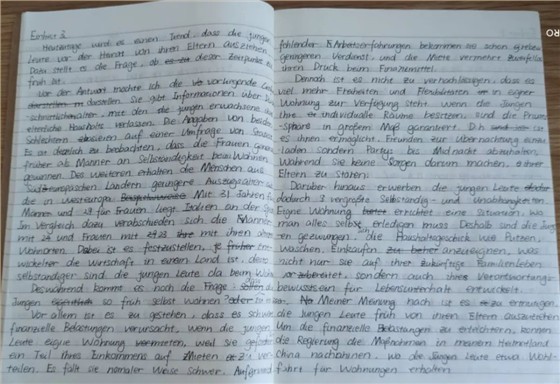 Einheit 3
Heutzutage wird es einen Trend, dass die jungen
Leute vor der Heirat von ihren Eltern ausziehen.
Dann stellt es die Frage, ob dieser Zeitpunkt zu
früh ist.
Vor der Antwort möchte ich die vorliegende
darstellen. Sie gibt Informationen über
schnittsalter, mit den die jungen erwachsene
elterliche Haushalte verlassen. Die Angaben von beiden
Schlechtern basieren auf einer Umfrage von
Es ist deutlich zu beobachten, dass die Frauen
früher als Männer an Selbständigkeit beim Wohnen
gewinnen. Des weiteren erhalten die Menschen aus
Südeuropäischen Ländern geringere
die in westeuropa. Mit 31 Jahren für
Männer und 29 für Frauen liegt Italien an der
Im Vergleich dazu verabschieden sich die Männer
mit 24 und Frauen mit ihre
Wohnorten. Dabei ist es festzustellen, je
wickelter die Wirtschaft in einem Land ist, desto
selbständiger sind die jungen Leute da beim Wohnen
Deswährend kommt es noch die Frage: Sollen
Jungen so früh selbst wohnen? oder
Vor allem ist es zu gestehen, dass es
finanzielle Belastungen verursacht, wenn die jungen
Leute eigene Wohnung vermieten, weil sie
ein Teil ihres Einkommens auf Mieten zu
teilen. Es fällt sie normaler Weise schwer. Aufgrund
fehlender Arbeitserfahrungen bekommen sie schon
geringeren Verdienst und die Miete vermehrte zweifellos
ihren Druck beim Finanzmittel.
Dennoch ist es nicht zu vernachlässigen, dass es
viel mehr Freiheiten und Flexibilitäten in eigener
Wohnung zur Verfügung steht. Wenn die Jungen
ihre individuelle Räume besitzen, sind die Privat
sphäre in großem Maß garantiert. D.h.
es ihnen ermöglicht, Freunden zur Übernachtung
laden sondern Partys bis Midnacht abzuhalten,
während sie keine Sorgen darum machen, ihrer
Eltern zu stören.
Darüber hinaus erwerben die jungen Leute
dadurch vergrößte Selbständig- und Unabhängigkeiten.
Eigene Wohnung errichtet eine Situation, wo
man alles selbst erledigen muss. Deshalb sind die Jungen
gezwungen, die Haushaltsgeschick wie Putzen,
waschen, Einkaufen anzueignen, was
nicht nur sie auf ihre zukünftige Familienleben
vorbereitet, sondern auch ihre Verantwortungs-
bewusstsein für Lebensunterhalt entwickelt.
Meiner Meinung nach ist es zu ertragen,
die jungen Leute früh von ihren Eltern
Um die finanzielle Belastungen zu erleichtern, können
die Regierung die Maßnahmen in meinem Heimatland
China nachahmen, wo die jungen Leute etwa Wohl
fahrt für Wohnungen erhalten.